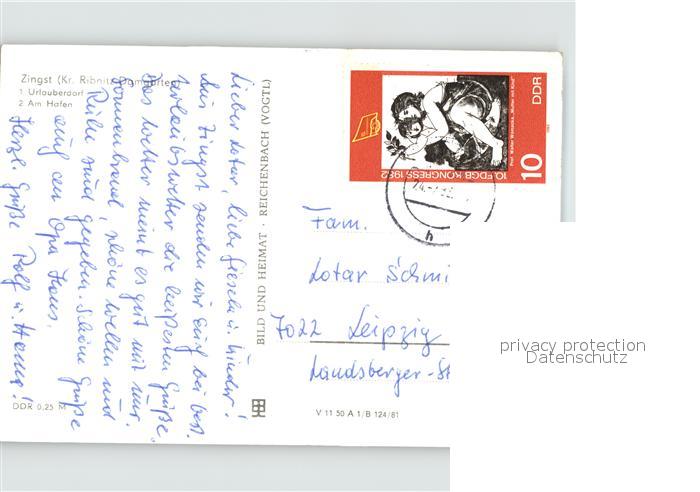 Zingst (Kr. Ribnitz-Damgarten)
1. Urlauberdorf
2. Am Hafen
Lieber Lotar, liebe Gisela u. Kinder!
Aus Zingst senden wir Euch bei best.
Urlaubswetter die heißesten Grüße.
Das Wetter meint es gut mit uns.
Sonnenbrand, schöne Wellen und
Ruhe sind gegeben. Schöne Grüße
auch an Opa Hans.
Herzl. Grüße Rolf u. Hanna!
DDR 0,25 M
BILD UND HEIMAT · REICHENBACH (VOGTL)
V 11 50 A 1/B 124/81
10. FDGB-KONGRESS 1982
Prof. Walter Womacka, „Mutter mit Kind"
DDR
10
24.-7.82
h
Fam.
Lotar Schmi
7022 Leipzig
Landsberger-St
privacy protection
Datenschutz